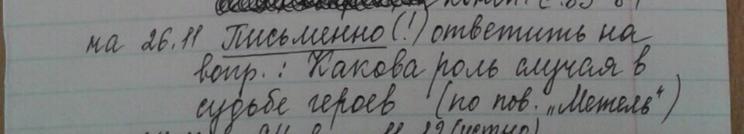 на 26.11 Письменно (!) ответить на
вопр.: Какова роль случая в
судьбе героев (по пов. „Метель“)
(устно)